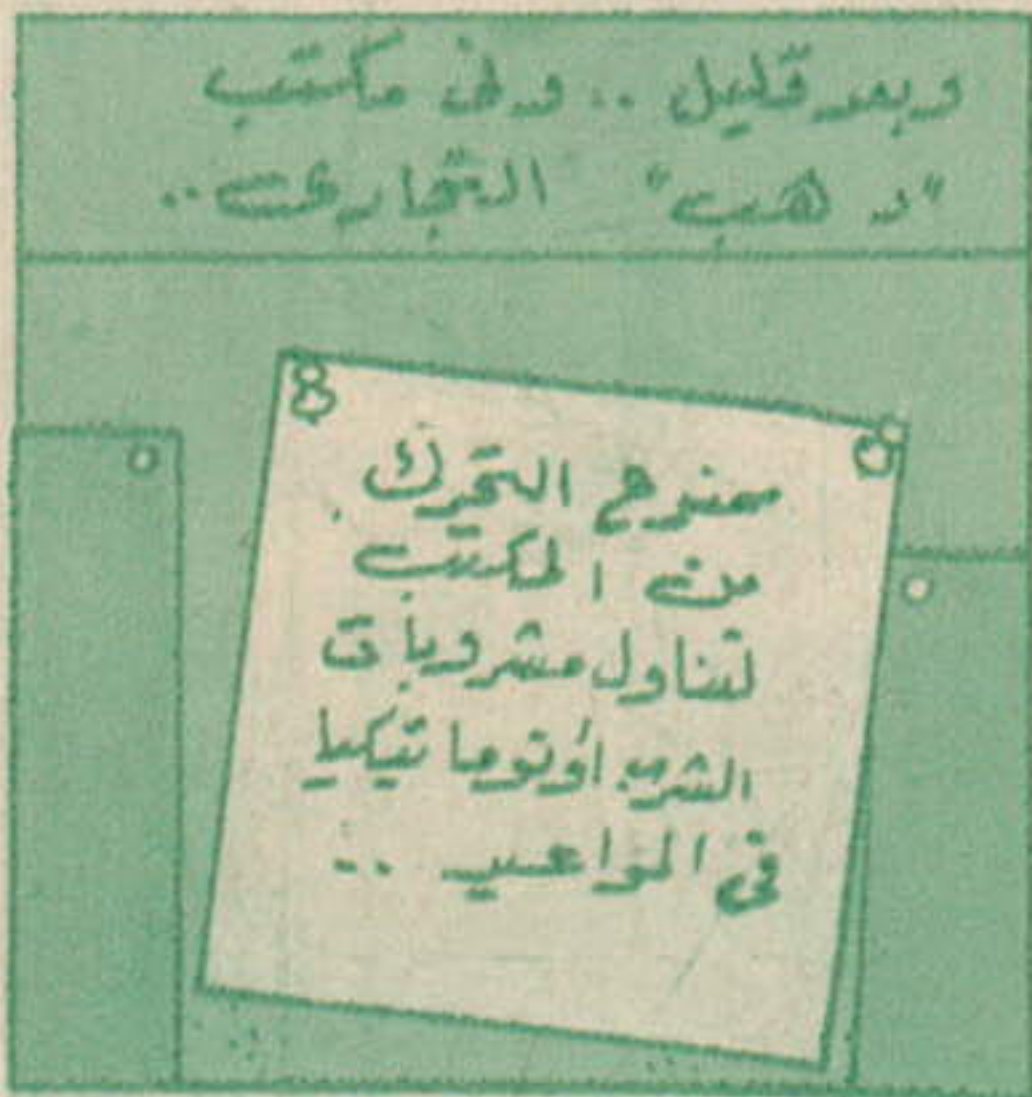 وبعد قليل .. وفى مكتب
"دهب" التجارى ..
ممنوع التحرك
من المكتب
لتناول مشروبات
الشرب أوتوماتيكيا
فى المواعيد ..